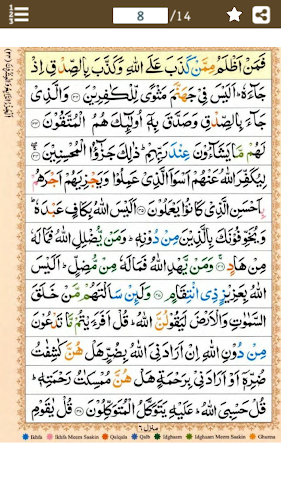 8 /14
فَمَنْ اَظْلَمُ مِمَّنْ كَذَبَ عَلَى اللّٰهِ وَكَذَّبَ بِالصِّدْقِ اِذْ
جَآءَهٗ ؕ اَلَيْسَ فِيْ جَهَنَّمَ مَثْوًى لِّلْكٰفِرِيْنَ ﴿۳۲﴾ وَالَّذِيْ
جَآءَ بِالصِّدْقِ وَصَدَّقَ بِهٖٓ اُولٰٓئِكَ هُمُ الْمُتَّقُوْنَ ﴿۳۳﴾
لَهُمْ مَّا يَشَآءُوْنَ عِنْدَ رَبِّهِمْ ؕ ذٰلِكَ جَزٰٓؤُا الْمُحْسِنِيْنَ ﴿۳۴﴾
لِيُكَفِّرَ اللّٰهُ عَنْهُمْ اَسْوَاَ الَّذِيْ عَمِلُوْا وَيَجْزِيَهُمْ اَجْرَهُمْ
بِاَحْسَنِ الَّذِيْ كَانُوْا يَعْمَلُوْنَ ﴿۳۵﴾ اَلَيْسَ اللّٰهُ بِكَافٍ عَبْدَهٗ ؕ
وَيُخَوِّفُوْنَكَ بِالَّذِيْنَ مِنْ دُوْنِهٖ ؕ وَمَنْ يُّضْلِلِ اللّٰهُ فَمَا لَهٗ
مِنْ هَادٍ ﴿۳۶﴾ وَمَنْ يَّهْدِ اللّٰهُ فَمَا لَهٗ مِنْ مُّضِلٍّ ؕ اَلَيْسَ
اللّٰهُ بِعَزِيْزٍ ذِي انْتِقَامٍ ﴿۳۷﴾ وَلَئِنْ سَاَلْتَهُمْ مَّنْ خَلَقَ
السَّمٰوٰتِ وَالْاَرْضَ لَيَقُوْلُنَّ اللّٰهُ ؕ قُلْ اَفَرَءَيْتُمْ مَّا تَدْعُوْنَ
مِنْ دُوْنِ اللّٰهِ اِنْ اَرَادَنِيَ اللّٰهُ بِضُرٍّ هَلْ هُنَّ كٰشِفٰتُ
ضُرِّهٖٓ اَوْ اَرَادَنِيْ بِرَحْمَةٍ هَلْ هُنَّ مُمْسِكٰتُ رَحْمَتِهٖ ؕ
قُلْ حَسْبِيَ اللّٰهُ ؕ عَلَيْهِ يَتَوَكَّلُ الْمُتَوَكِّلُوْنَ ﴿۳۸﴾ قُلْ يٰقَوْمِ
منزل ٦
Ikhfa Ikhfa Meem Saakin Qalqala Qalb Idghaam Idghaam Meem Saakin Ghunna